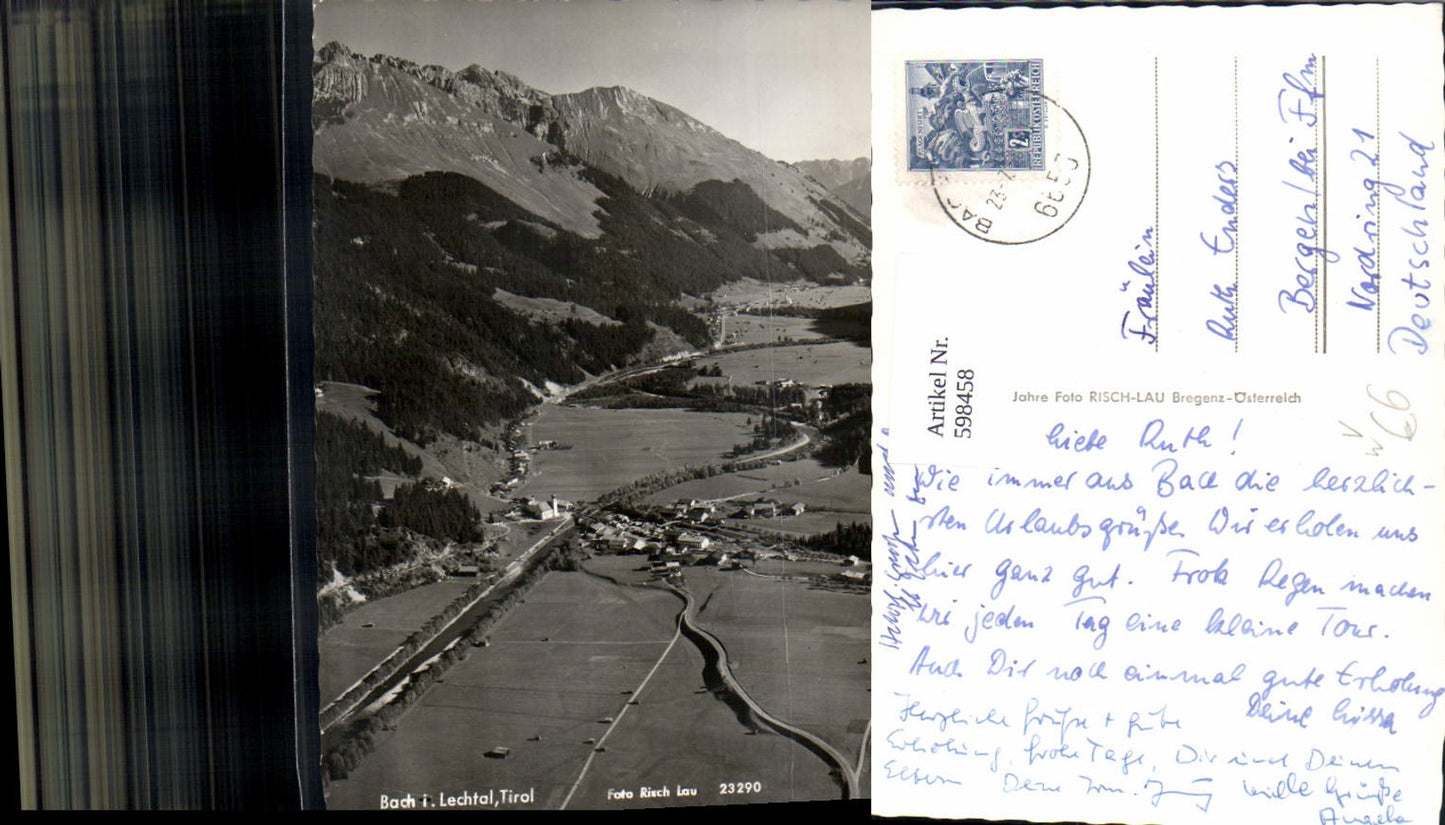 Bach i. Lechtal, Tirol
Foto Risch Lau 23290
KLAGENFURT
REPUBLIK ÖSTERREICH
2
23.-7.
6653
Fräulein
Ruth Enders
Bergen/bei Ffm
Nordring 21
Deutschland
Artikel Nr.
598458
Jahre Foto RISCH-LAU Bregenz-Österreich
V
W 66
Liebe Ruth!
Wie immer aus Bach die herzlich-
sten Urlaubsgrüße. Wir erholen uns
hier ganz gut. Trotz Regen machen
wir jeden Tag eine kleine Tour.
Auch Dir noch einmal gute Erholung
Deine
Herzliche Grüße + gute
Erholung, frohe Tage, Dir und Deinen
Eltern Deine
viele Grüße